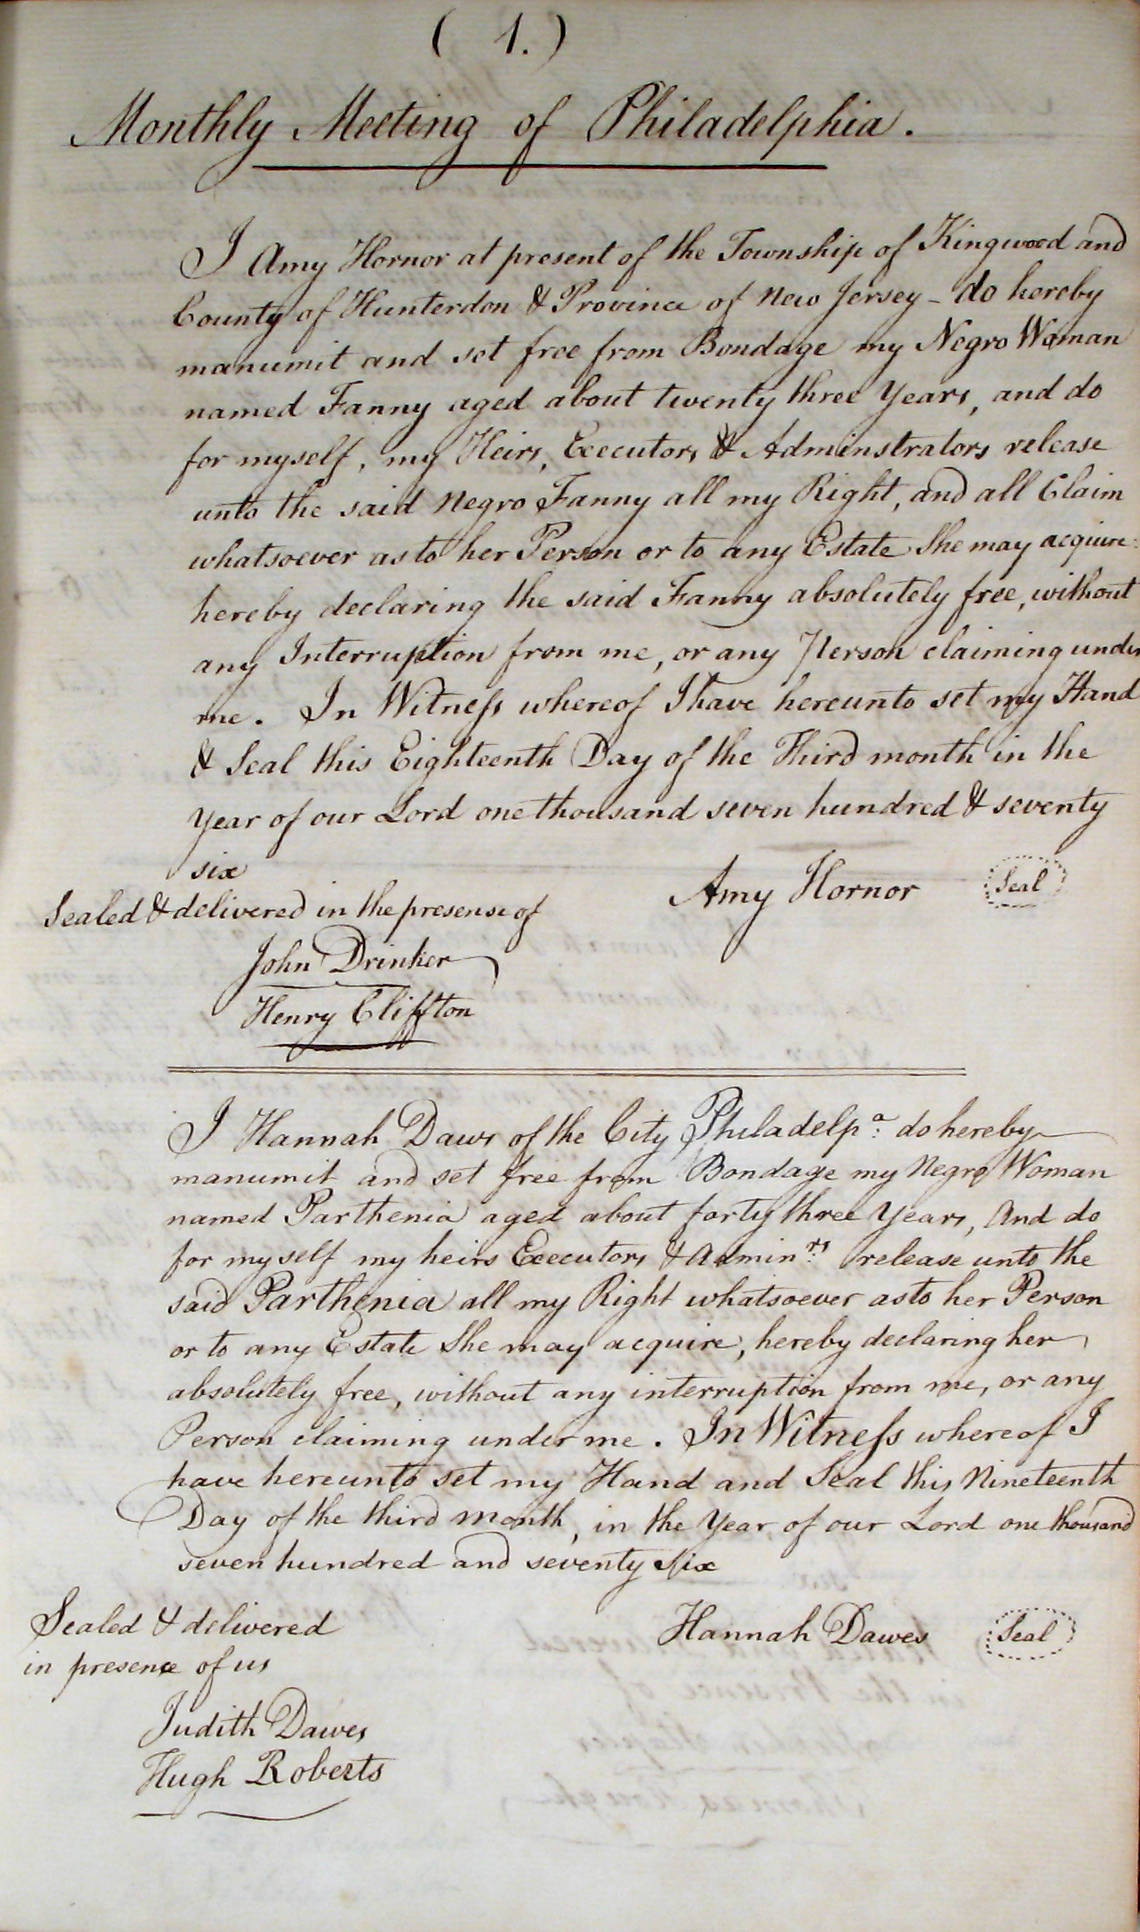 ( 1. )
Monthly Meeting of Philadelphia.
I Amy Hornor at present of the Township of Kingwood and
County of Hunterdon & Province of New Jersey - do hereby
manumit and set free from Bondage my Negro Woman
named Fanny aged about twenty three Years, and do
for myself, my Heirs, Executors & Adminstrators release
unto the said Negro Fanny all my Right, and all Claim
whatsoever as to her Person or to any Estate She may acquire:
hereby declaring the said Fanny absolutely free, without
any Interruption from me, or any Person claiming under
me. In Witness whereof I have hereunto set my Hand
& Seal this Eighteenth Day of the Third month in the
Year of our Lord one thousand seven hundred & seventy
six
Amy Hornor Seal
Sealed & delivered in the presense of
John Drinker
Henry Cliffton
I Hannah Daws of the City Philadelp.a do hereby
manumit and set free from Bondage my Negro Woman
named Parthenia aged about forty three Years, And do
for myself my heirs Executors & Admin.rs release unto the
said Parthenia all my Right whatsoever as to her Person
or to any Estate She may acquire, hereby declaring her
absolutely free, without any interruption from me, or any
Person claiming under me. In Witness whereof I
have hereunto set my Hand and Seal this Nineteenth
Day of the third month, in the Year of our Lord one thousand
seven hundred and seventy Six
Sealed & delivered
in presence of us
Hannah Dawes Seal
Judith Dawes
Hugh Roberts